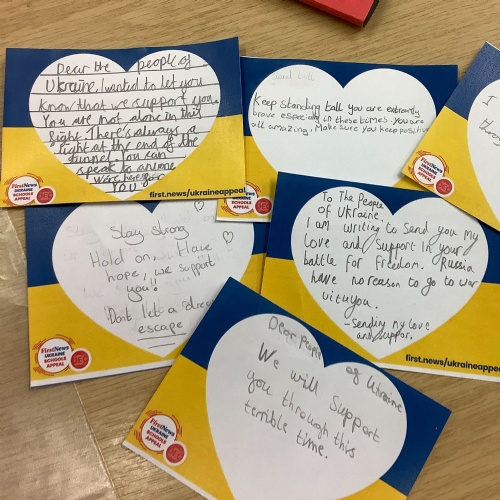 Dear the people of
Ukraine, I wanted to let you
know that we support you.
You are not alone in this
fight. There's always a
light at the end of the
tunnel. You can
speak to anyone
We're here for
YOU
FirstNews
UKRAINE
SCHOOLS
APPEAL
first.news/ukraineappeal
Keep standing tall you are extremly
brave especially in these times. you are
all amazing. Make sure you keep positive
FirstNews
UKRAINE
SCHOOLS
APPEAL
I
FirstNews
UKRAINE
SCHOOLS
APPEAL
Stay strong
Hold on. Have
hope, we support
you!!
Dont let a
escape
FirstNews
UKRAINE
SCHOOLS
APPEAL
To The People
of Ukraine.
I am writing to send you my
love and support in your
battle for freedom. Russia
have no reason to go to war
with you.
- Sending my love
and support.
first.news/ukraineappeal
Dear People of Ukraine
We will support
you through this
terrible time.
FirstNews
UKRAINE
SCHOOLS
APPEAL